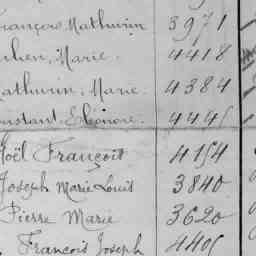 François Mathurin 3971
Marie. 4418
Mathurin, Marie. 4384
Constant Eléonore. 4445
Noël François 4154
Joseph Marie Louis 3840
Pierre Marie 3620
François Joseph 4405